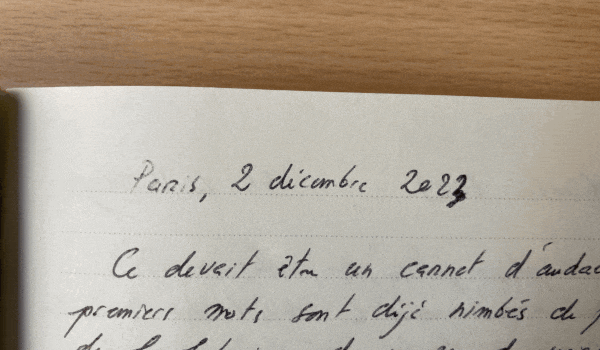 Paris, 2 décembre 2023
Ce devait être un carnet d'audac
premiers mots sont déjà nimbés de